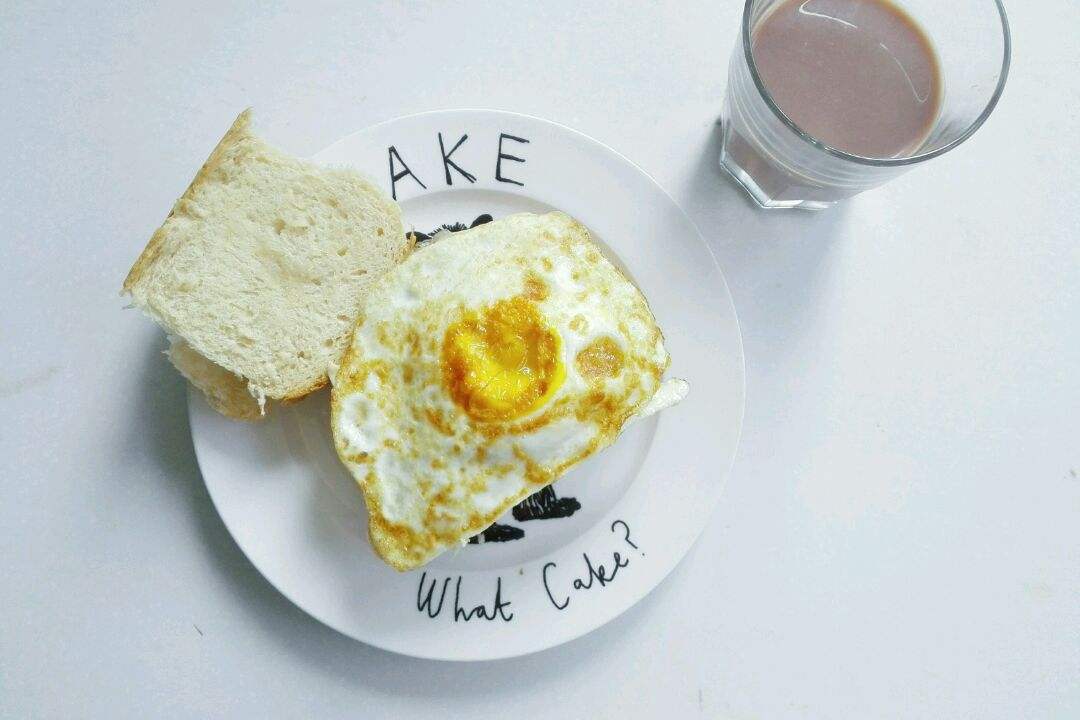 AKE
What Cake?